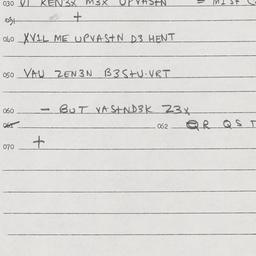 030 VI KEN3X M3X UPVASTN = MIST
031 +
040 XVIL ME UPVASTN D3 HENT
050 VAU ZEN3N B3STU.VRT
060 - BUT VASTND3K Z3X
061 062 QR QS T
070 +